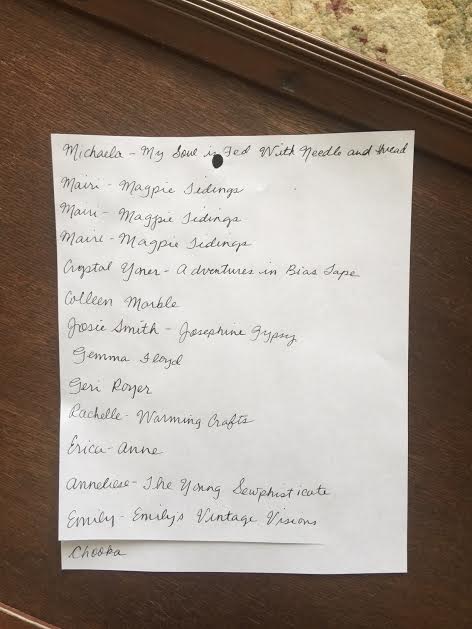 Michaela - My Soul is Fed With Needle and thread
Mairi - Magpie Tidings
Mairi - Magpie Tidings
Mairi - Magpie Tidings
Crystal Yoner - Adventures in Bias Tape
Colleen Marble
Josie Smith - Josephine Gypsy
Gemma Floyd
Geri Royer
Rachelle - Warming Crafts
Erica-Anne
Anneliese - The Young Sewphisticate
Emily - Emily's Vintage Visions
Chooka